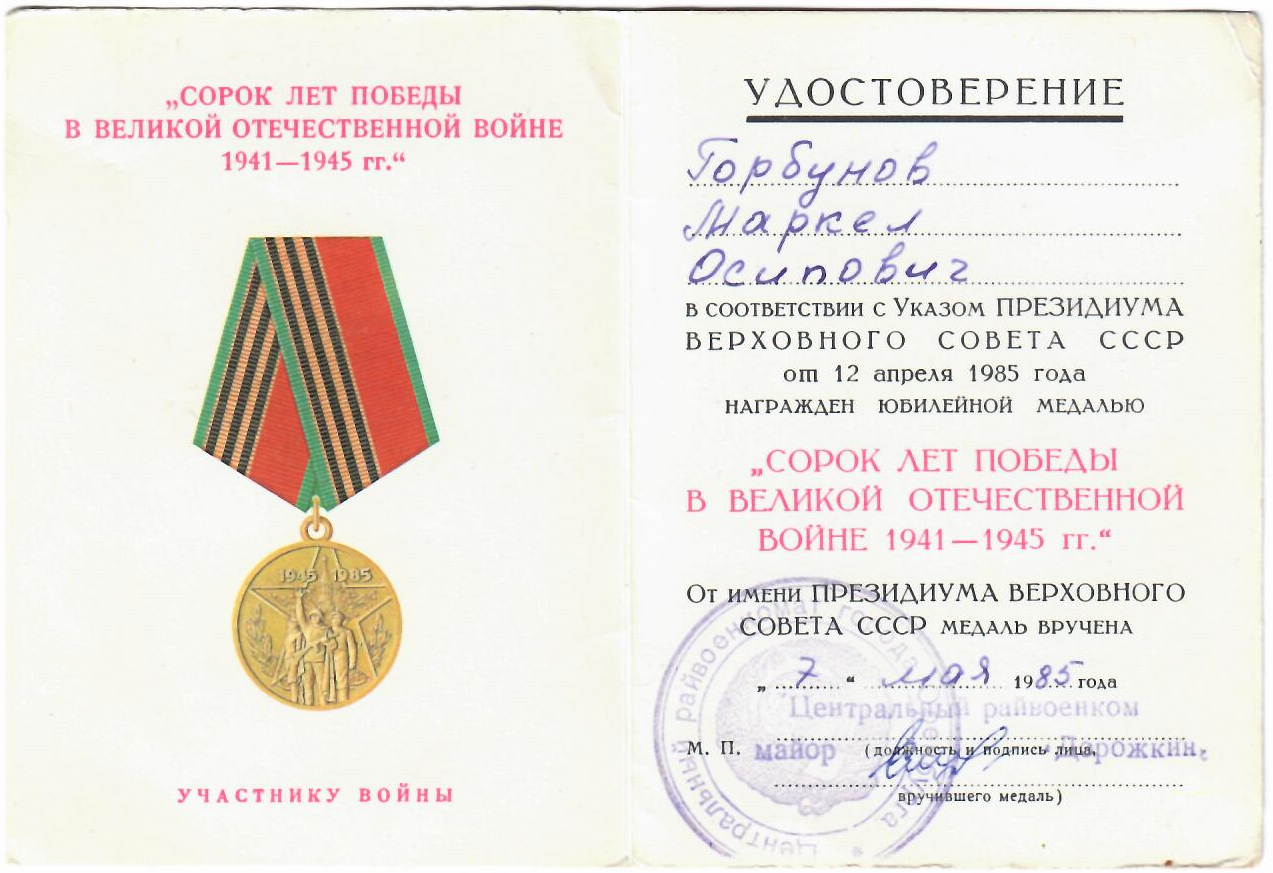 „СОРОК ЛЕТ ПОБЕДЫ
В ВЕЛИКОЙ ОТЕЧЕСТВЕННОЙ ВОЙНЕ
1941—1945 гг.“
1945 1985
УЧАСТНИКУ ВОЙНЫ
УДОСТОВЕРЕНИЕ
Горбунов
Маркел
Осипович
в соответствии с Указом ПРЕЗИДИУМА
ВЕРХОВНОГО СОВЕТА СССР
от 12 апреля 1985 года
НАГРАЖДЕН ЮБИЛЕЙНОЙ МЕДАЛЬЮ
„СОРОК ЛЕТ ПОБЕДЫ
В ВЕЛИКОЙ ОТЕЧЕСТВЕННОЙ
ВОЙНЕ 1941—1945 гг.“
От имени ПРЕЗИДИУМА ВЕРХОВНОГО
СОВЕТА СССР медаль вручена
„ 7 “ мая 1985 года
Центральный райвоенком
М. П. майор (должность и подпись лица, Дорожкин
вручившего медаль)
Центральный райвоенкомат города